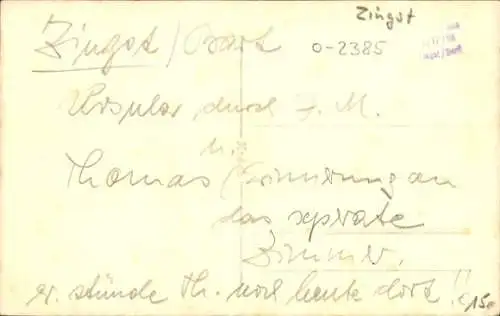 Zingst
Zingst / Barth
0-2385
Ursula durch F. M.
u.
Thomas (Erinnerung an
das separate
Zimmer.
er stünde Th. noch heute dort!!